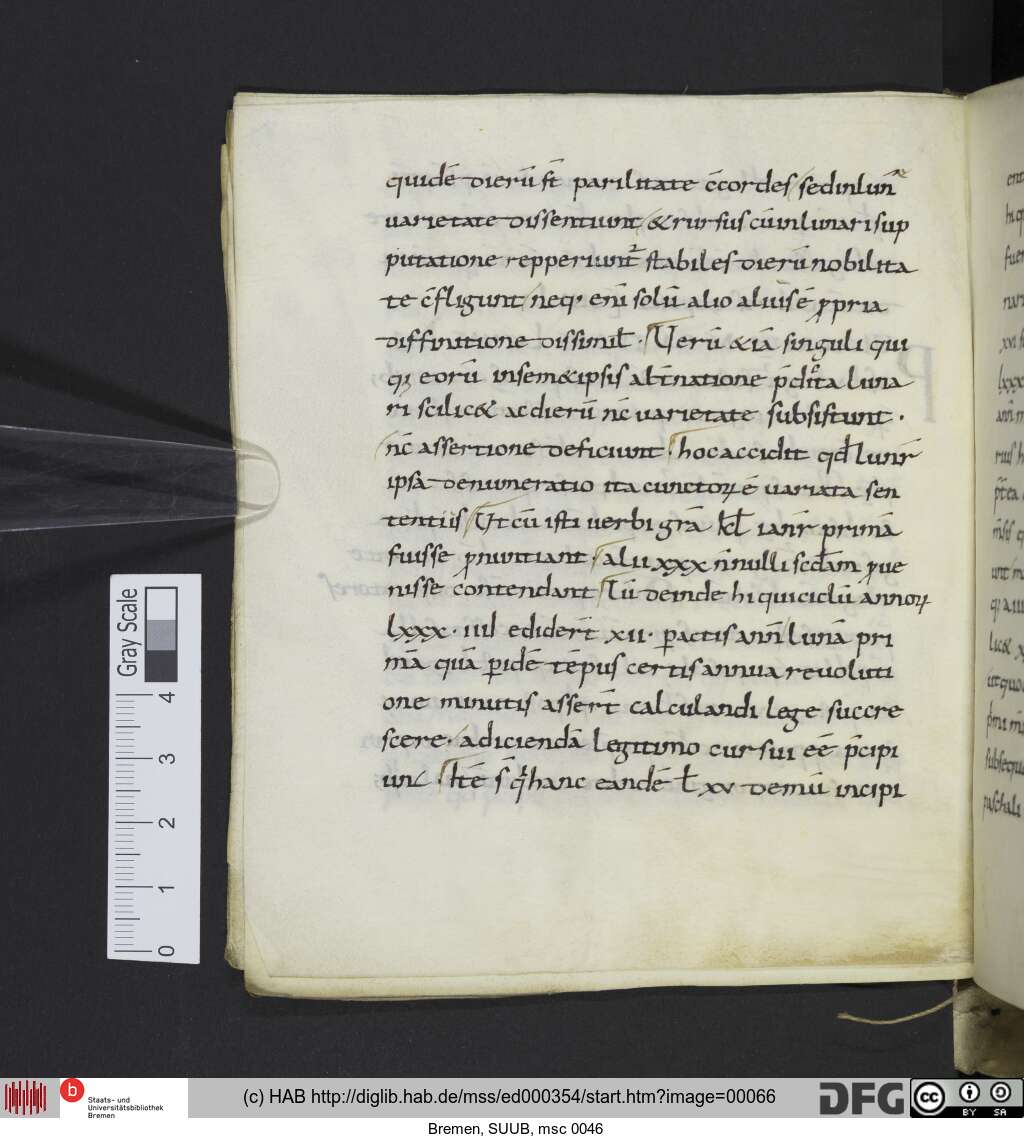 quidē dierū st̄ parilitate c̄cordes sed in lun̄
varietate dissentiunt & rursus cū in lunari sup
putatione repperiunt̄ stabiles dierū nobilita
te c̄fligunt neq· eni solū alio alius ē ꝓpria
diffinitione dissimil̄· Verū &iā singuli qui
q; eorū insem&ipsis alt̄natione p̄dicta luna
ri scilic& ac dierū nc̄ varietate subsistunt·
nc̄ assertione deficiunt· hoc accidit qd̄ lunr̄
ipsa denumeratio ita cunctoꝝ ē variata sen
tentiis Ut cū isti verbi grā kl̄ ianr̄ primā
fuisse ꝓnuntiant· alii xxx nn̄ulli scdam ꝓve
nisse contendant Tū deinde hi qui ciclū annoꝝ
lxxx· iiii ediderт̄ xii· ꝑactis ann̄ lunā pri
mā quā ꝑidē tēpus certis annua revoluti
one minutis assert̄ calculandi lege succre
scere· adiciendā legitimo cursui eē p̄cipi
unt· Itē s̄ q hanc eandē t̄ xv demū incipi
Gray Scale
4
3
2
1
0
b
Staats- und
Universitätsbibliothek
Bremen
(c) HAB http://diglib.hab.de/mss/ed000354/start.htm?image=00066
DFG
cc
BY SA
Bremen, SUUB, msc 0046